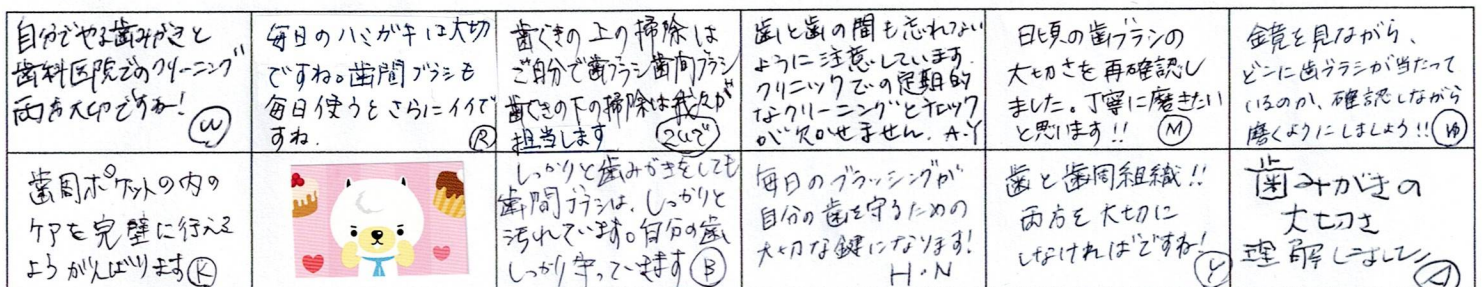 自分でやる歯みがきと
歯科医院でのクリーニング
両方大切ですね!
W
毎日のハミガキは大切
ですね。歯間ブラシも
毎日使うとさらにイイで
すね.
R
歯ぐきの上の掃除は
ご自分で歯ブラシ歯間ブラシ
歯ぐきの下の掃除は我々が
担当します
歯と歯の間も忘れない
ように注意しています.
クリニックでの定期的
なクリーニングとチェック
が欠かせません. A.Y
日頃の歯ブラシの
大切さを再確認し
ました。丁寧に磨きたい
と思います!! M
鏡を見ながら、
どこに歯ブラシが当たって
いるのか、確認しながら
磨くようにしましょう!! ゆ
歯周ポケットの内の
ケアを完璧に行える
ようがんばります K
しっかりと歯みがきをしても
歯間ブラシは、しっかりと
汚れています。自分の歯
しっかり守っていきます B
毎日のブラッシングが
自分の歯を守るための
大切な鍵になります!
H・N
歯と歯周組織!!
両方を大切に
しなければですね!
Y
歯みがきの
大切さ
理解しました
A